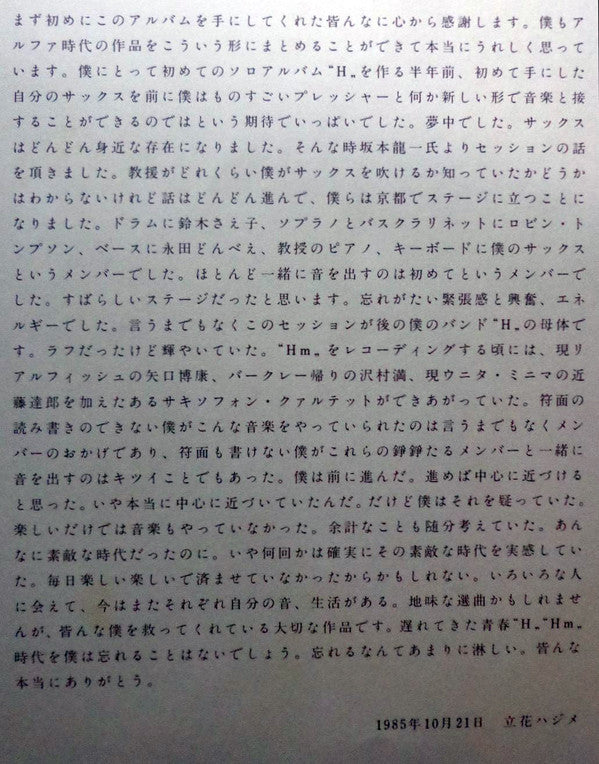 まず初めにこのアルバムを手にしてくれた皆んなに心から感謝します。僕もア
ルファ時代の作品をこういう形にまとめることができて本当にうれしく思って
います。僕にとって初めてのソロアルバム“H„を作る半年前、初めて手にした
自分のサックスを前に僕はものすごいプレッシャーと何か新しい形で音楽と接
することができるのではという期待でいっぱいでした。夢中でした。サックス
はどんどん身近な存在になりました。そんな時坂本龍一氏よりセッションの話
を頂きました。教援がどれくらい僕がサックスを吹けるか知っていたかどうか
はわからないけれど話はどんどん進んで、僕らは京都でステージに立つことに
なりました。ドラムに鈴木さえ子、ソプラノとバスクラリネットにロビン・ト
ンプソン、ベースに永田どんべえ、教授のピアノ、キーボードに僕のサックス
というメンバーでした。ほとんど一緒に音を出すのは初めてというメンバーで
した。すばらしいステージだったと思います。忘れがたい緊張感と興奮、エネ
ルギーでした。言うまでもなくこのセッションが後の僕のバンド“H„の母体で
す。ラフだったけど輝やいていた。“Hm„をレコーディングする頃には、現リ
アルフィッシュの矢口博康、バークレー帰りの沢村満、現ウニタ・ミニマの近
藤達郎を加えたあるサキソフォン・クァルテットができあがっていた。符面の
読み書きのできない僕がこんな音楽をやっていられたのは言うまでもなくメン
バーのおかげであり、符面も書けない僕がこれらの錚錚たるメンバーと一緒に
音を出すのはキツイことでもあった。僕は前に進んだ。進めば中心に近づける
と思った。いや本当に中心に近づいていたんだ。だけど僕はそれを疑っていた。
楽しいだけでは音楽もやっていなかった。余計なことも随分考えていた。あん
なに素敵な時代だったのに。いや何回かは確実にその素敵な時代を実感してい
た。毎日楽しい楽しいで済ませていなかったからかもしれない。いろいろな人
に会えて、今はまたそれぞれ自分の音、生活がある。地味な選曲かもしれませ
んが、皆んな僕を救ってくれている大切な作品です。遅れてきた青春“H„“Hm„
時代を僕は忘れることはないでしょう。忘れるなんてあまりに淋しい。皆んな
本当にありがとう。
1985年10月21日　立花ハジメ